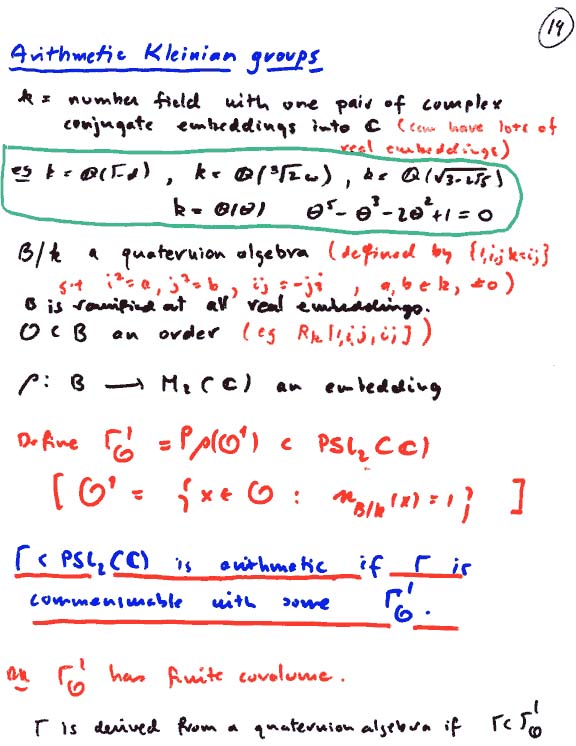 19
Arithmetic Kleinian groups
k = number field with one pair of complex
conjugate embeddings into C (can have lots of
real embeddings)
eg k = Q(√-d) , k = Q(³√2 ω) , k = Q(√3-2√5)
k = Q(θ) θ⁵ - θ³ - 2θ² + 1 = 0
B/k a quaternion algebra (defined by {1,i,j,k=ij}
s.t i² = a, j² = b, ij = -ji , a, b ∈ k, ≠0)
B is ramified at all real embeddings.
O ⊂ B an order (eg R_k[1,i,j,ij])
ρ: B → M₂(C) an embedding
Define Γ_O^1 = Pρ(O^1) < PSL₂(C)
[ O^1 = { x ∈ O : n_{B/k}(x) = 1 } ]
Γ < PSL₂(C) is arithmetic if Γ is
commensurable with some Γ_O^1.
Γ_O^1 has finite covolume.
Γ is derived from a quaternion algebra if Γ < Γ_O^1